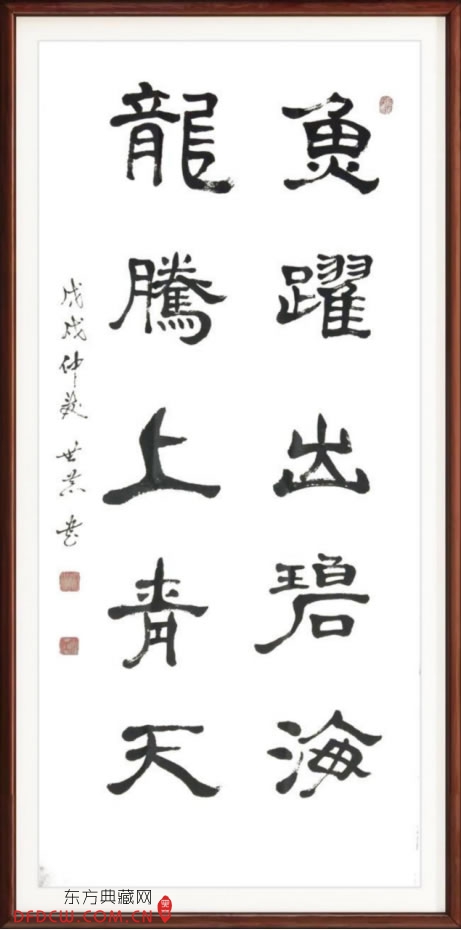 魚躍出碧海
龍騰上青天
戊戌仲夏 世 書
东方典藏网
DFDCW.COM.CN